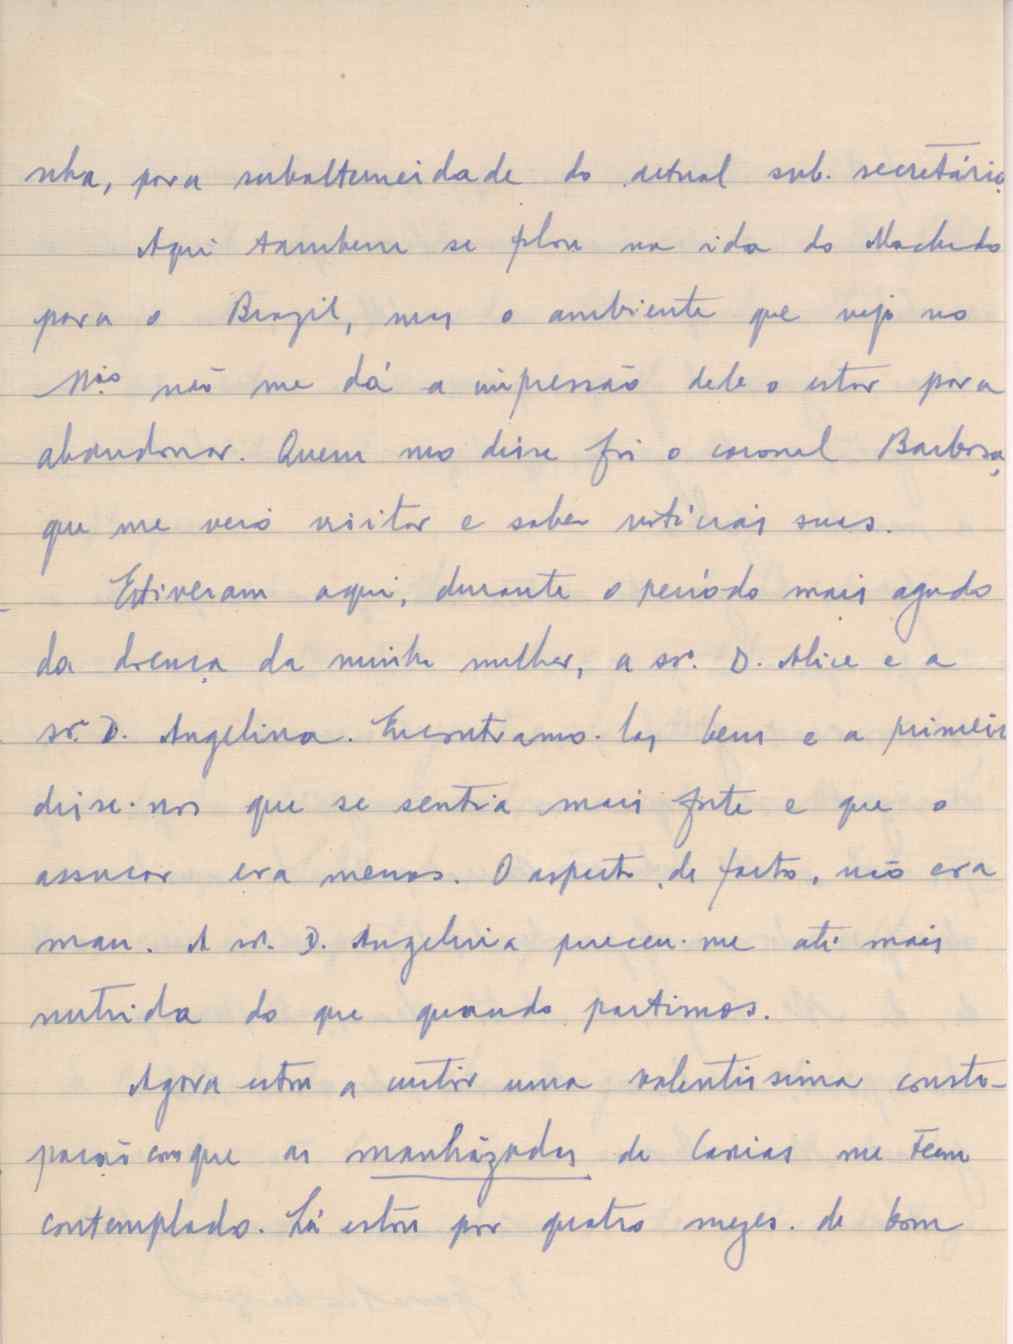 nha, para subalterneidade do actual sub. secretário.
Aqui tambem se falou na ida do Machado
para o Brazil, mas o ambiente que vejo no
não me dá a impressão dele o estar para
abandonar. Quem mo disse foi o coronel Barbosa,
que me veio visitar e saber noticias suas.
Estiveram aqui, durante o período mais agudo
da doença da minha mulher, a srª. D. Alice e a
srª D. Angelina. Encontramo-las bem e a primeira
disse-nos que se sentia mais forte e que o
assucar era menos. O aspecto, de facto, não era
mau. A srª. D. Angelina pareceu-me até mais
nutrida do que quando partimos.
Agora estou a curtir uma valentissima consti-
pação com que as manhãzadas de Caxias me teem
contemplado. Lá estou por quatro mezes. de bom